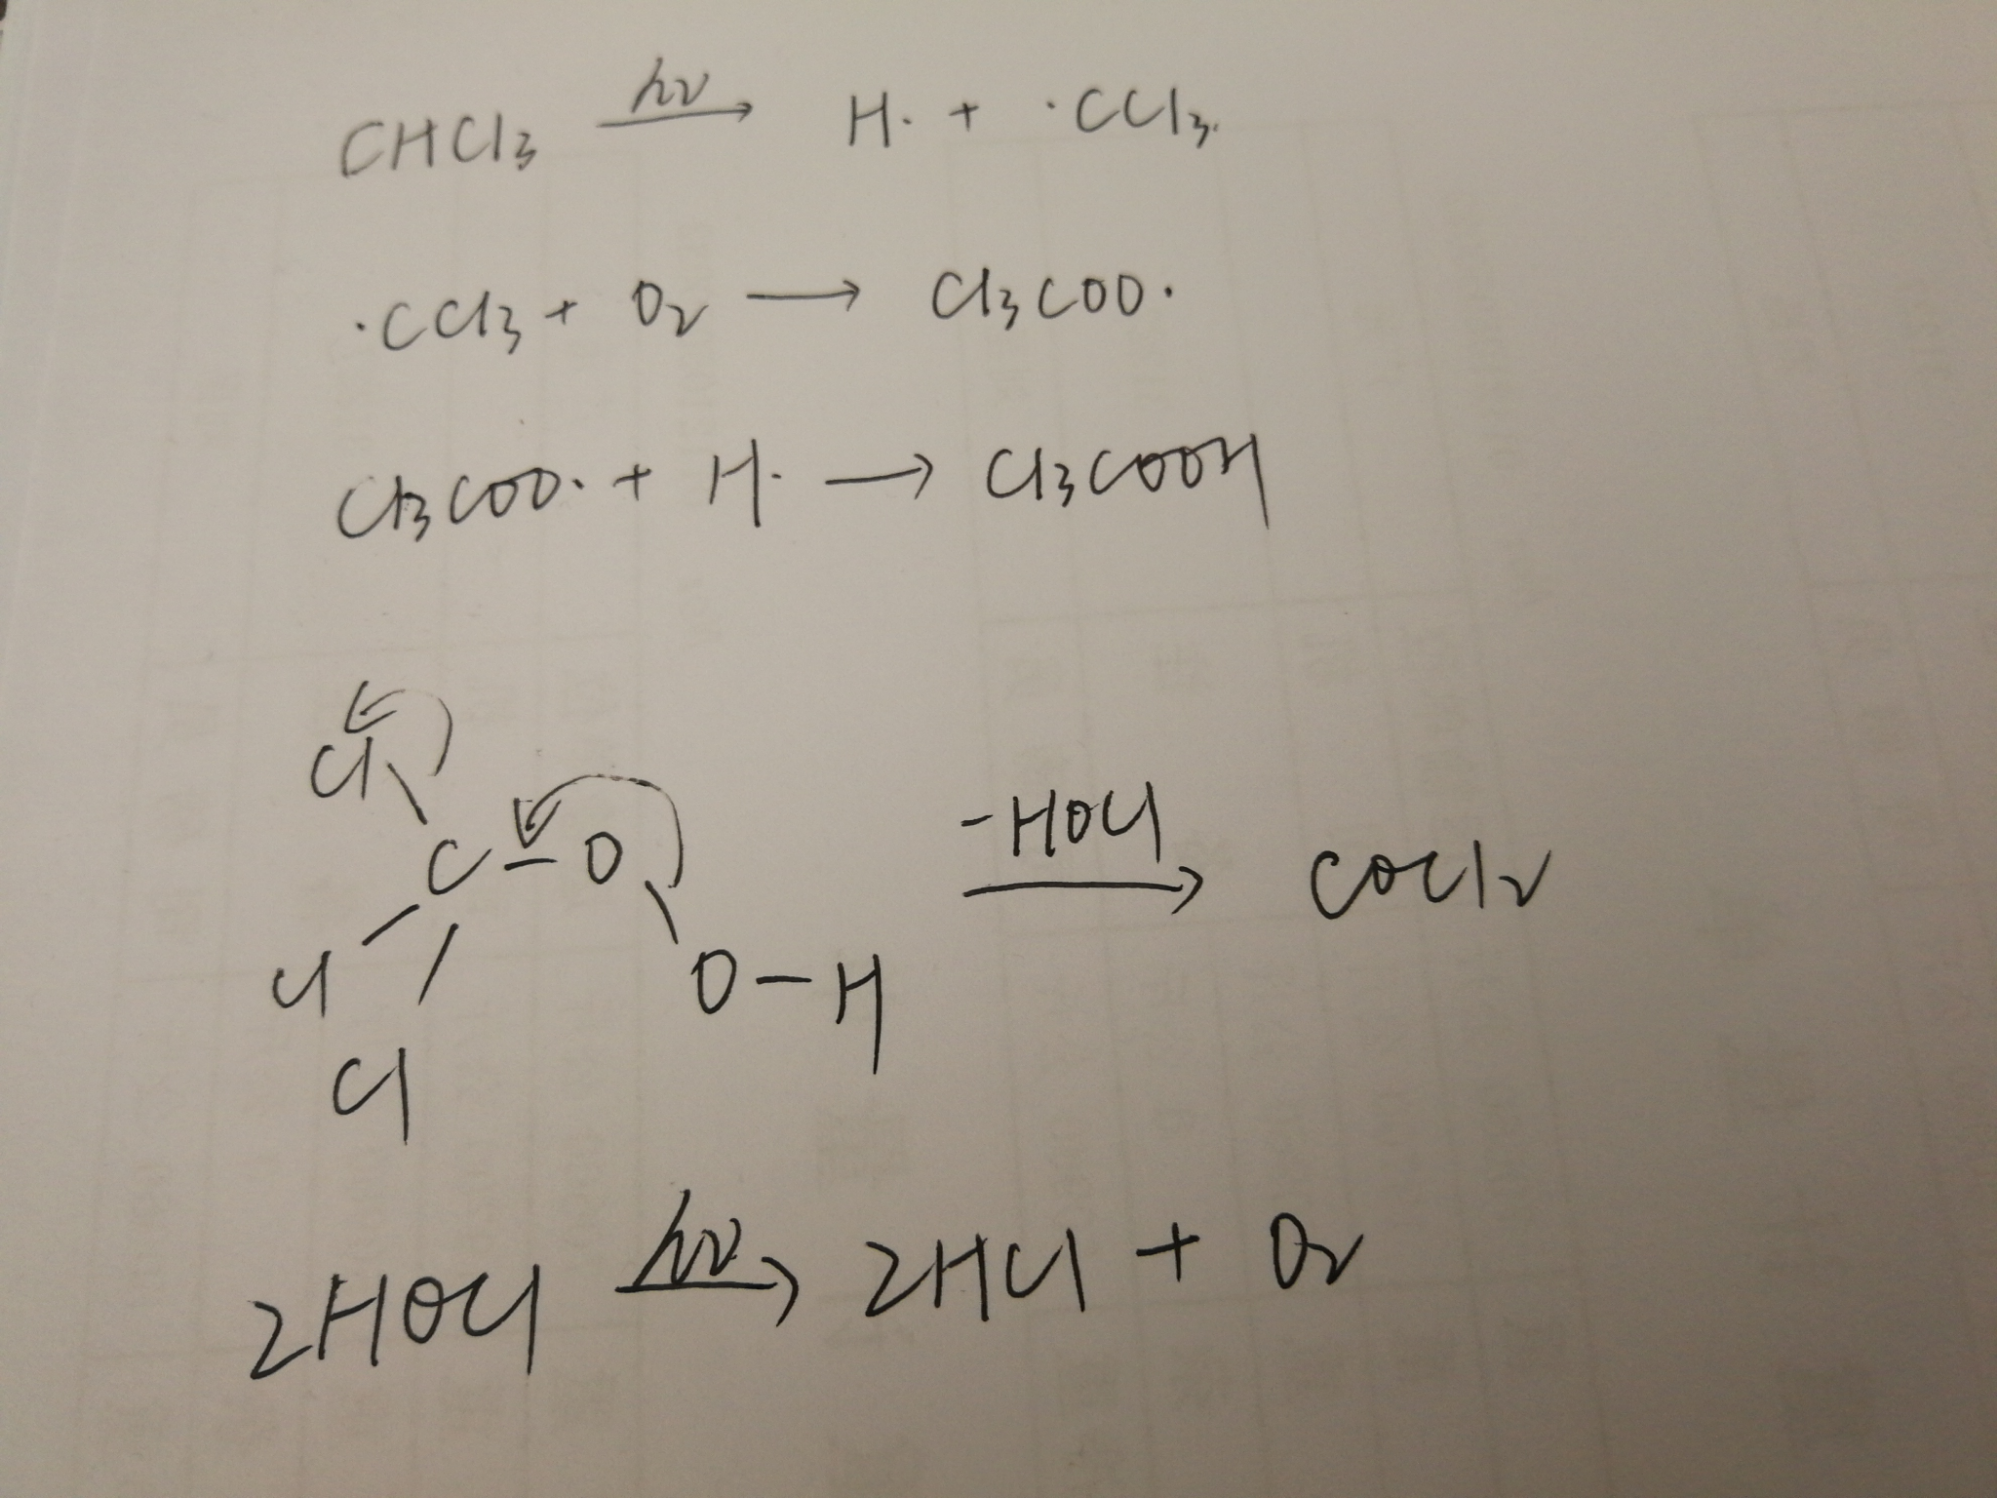 CHCl3 hν → H· + ·CCl3
·CCl3 + O2 → Cl3COO·
Cl3COO· + H· → Cl3COOH
Cl
C-O -HOCl → COCl2
Cl O-H
Cl
2HOCl hν → 2HCl + O2